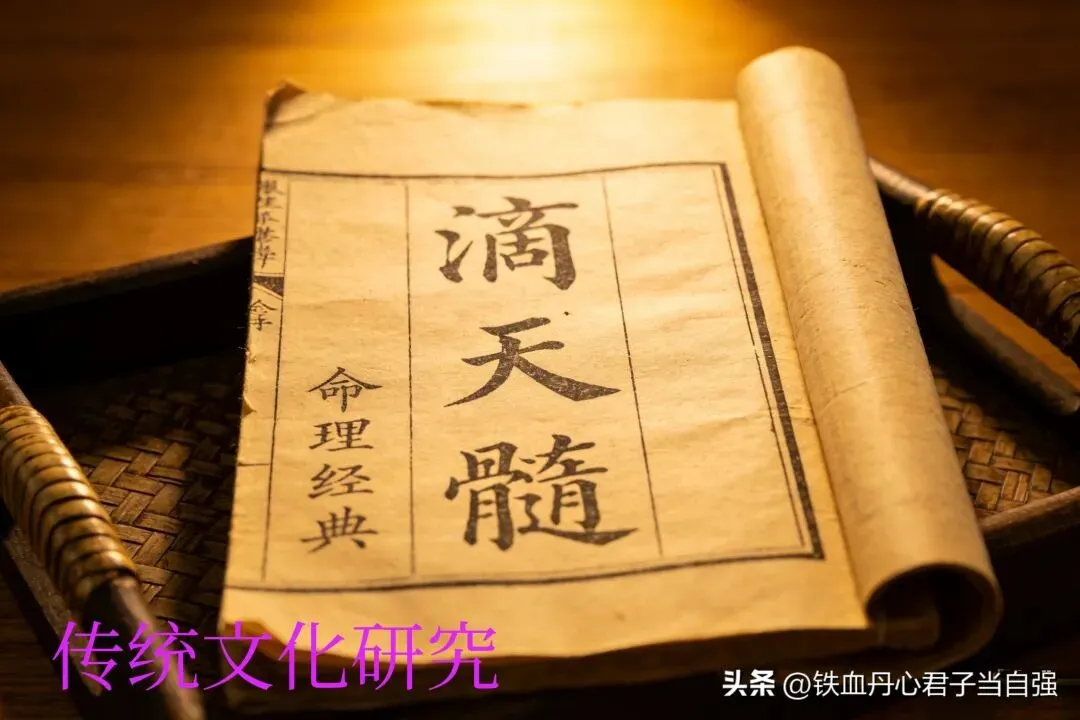 滴天髓
命理经典
传统文化研究
头条 @铁血丹心君子当自强